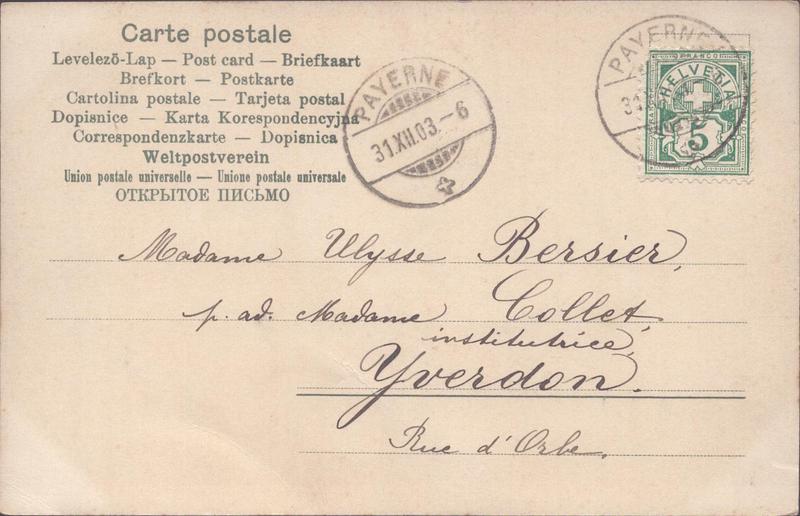 Carte postale
Levelező-Lap — Post card — Briefkaart
Brefkort — Postkarte
Cartolina postale — Tarjeta postal
Dopisnice — Karta Korespondencyjna
Correspondenzkarte — Dopisnica
Weltpostverein
Union postale universelle — Unione postale universale
ОТКРЫТОЕ ПИСЬМО
PAYERNE
31.XII.03.–6
PAYERNE
31
FRANCO
HELVETIA
5
Madame Ulysse Bersier,
p. ad. Madame Collet,
institutrice,
Yverdon.
Rue d'Orbe.